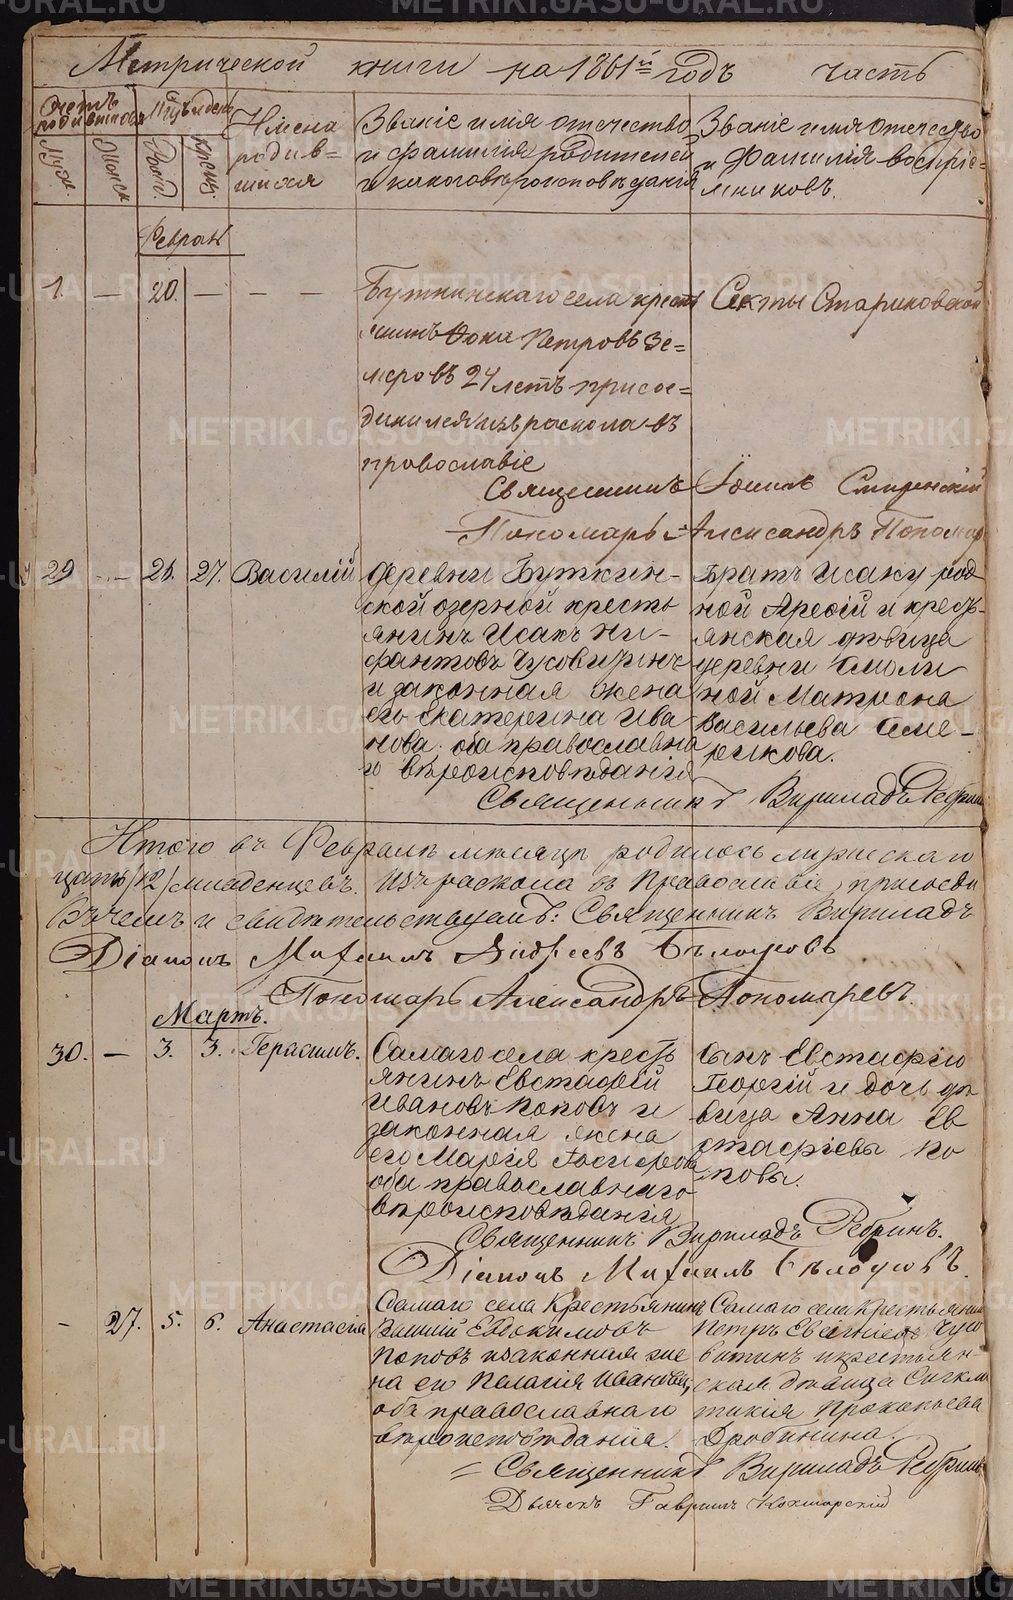 METRIKI.GASO-URAL.RU
Метрической книги на 1861й годъ часть
Счетъ родившихся
Мѣсяцъ и день
Имена родившихся
Званіе имя отечество и фамилія родителей и какого вѣроисповѣданія
Званіе имя отечество и фамилія воспріемниковъ.
Муж.
Женск.
Рожд.
Крещ.
Феврал
1. — 20. — — —
Буткинскаго села кресть
янинъ Фока Петровъ Зе=
меровъ 24 летъ присое=
динился изъ раскола въ
православіе
Секты Стариковской
Священникъ Смиренскій
Пономарь Александръ Пономар
29 — 26. 27. Василій
деревни Буткин-
ской озерной кресть
янинъ Исакъ Ни-
фантовъ Чусовитинъ
и законная жена
его Екатерина Ива
нова. оба православна
го вѣроисповѣданія
Братъ Исаку род
ной Арефій и кресть-
янская дѣвица
деревни Смоли
ной Матрона
Васильева Семе-
рикова.
Священникъ Вириладъ Ребрин
Итого въ Февралѣ мѣсяцѣ родилось мужескаго
цать /12/ младенцевъ. Изъ раскола въ Православіе присоеди
Въ чемъ и свидѣтельствуемъ: Священникъ Вириладъ
Діаконъ Михаилъ Андреевъ Бѣлоусовъ
Пономарь Александръ Пономаревъ.
Мартъ.
30. — 3. 3. Герасимъ.
Самаго села кресть
янинъ Евстафій
Ивановъ Поповъ и
законная жена
его Марія
оба православнаго
вѣроисповѣданія
Сынъ Евстафію
Георгій и дочь дѣ
вица Анна Ев
стафіевы По
повы.
Священникъ Вириладъ Ребринъ.
Діаконъ Михаилъ Бѣлоусовъ.
— 27. 5. 6. Анастасія
Самаго села Крестьянинъ
Евдокимовъ
Поповъ и законная же
на его Пелагія Иванова,
оба православнаго
вѣроисповѣданія.
Самаго села Крестьянин
Петръ Евгеніевъ Чусо
витинъ и крестьян-
ская дѣвица Синкли
тикія Прокопьева
Дробинина.
= Священникъ Вириладъ Ребринъ
Дьячекъ Гавріилъ Кокшарскій